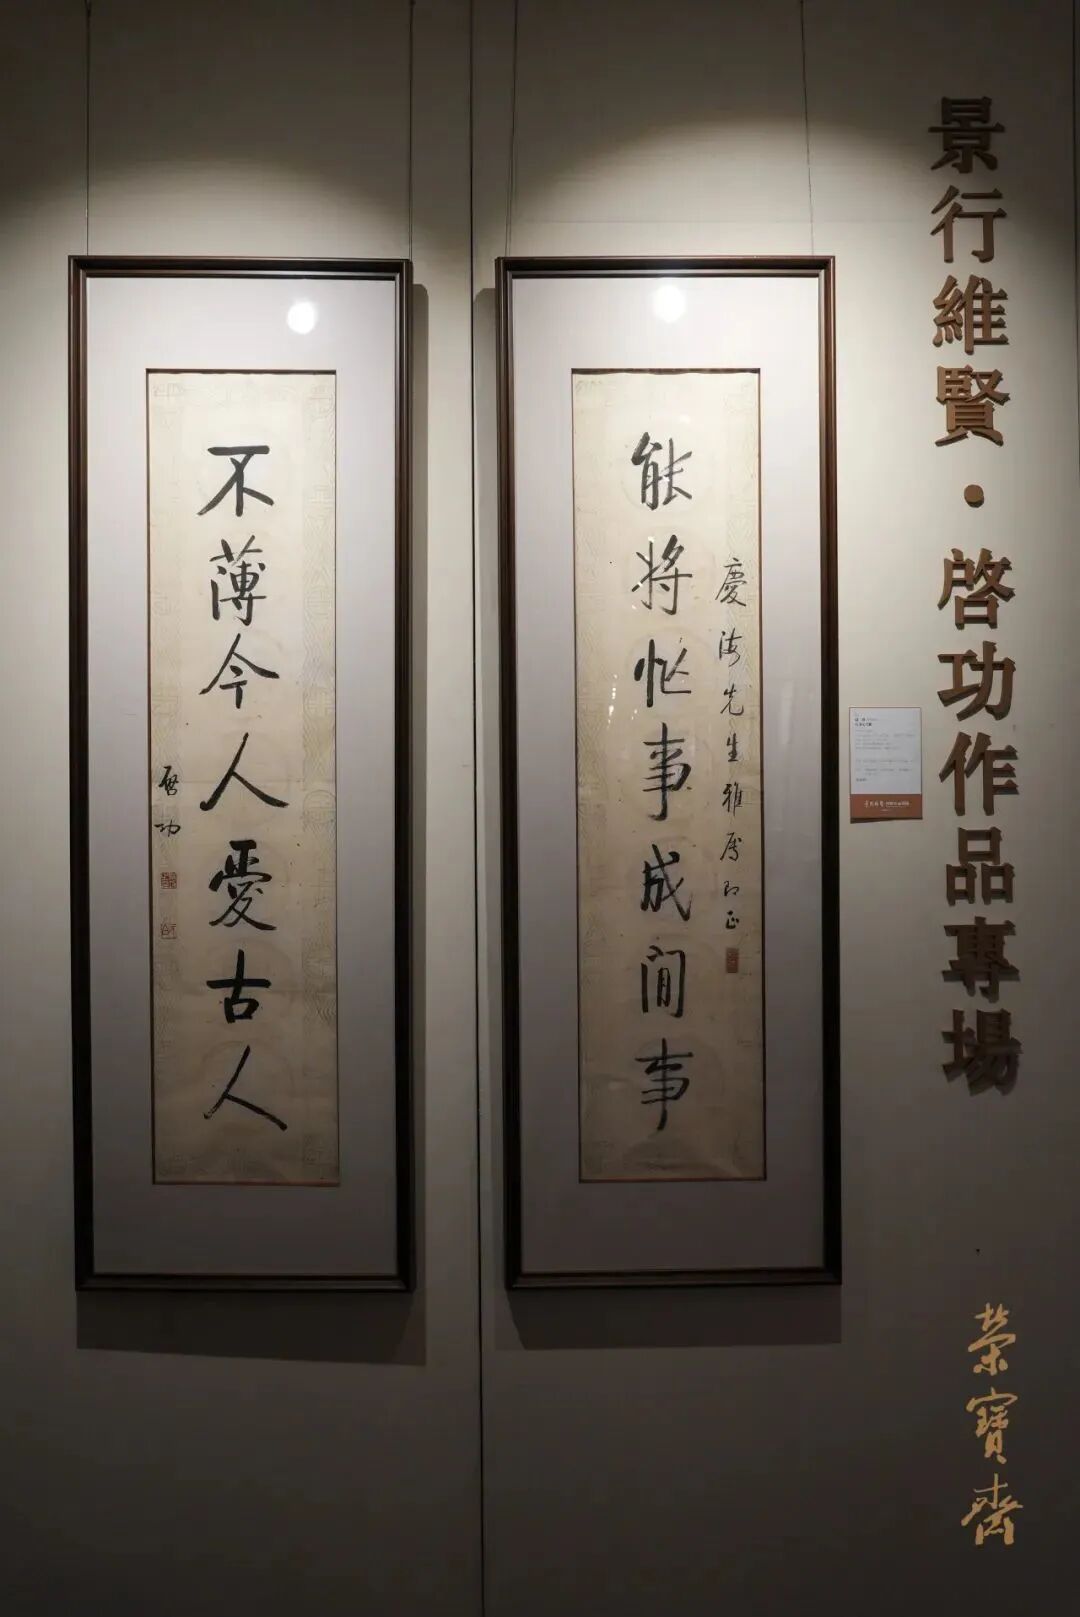 景行維賢·啓功作品專場
慶海先生雅屬即正
能將忙事成閒事
不薄今人愛古人
啓功
榮寶齋